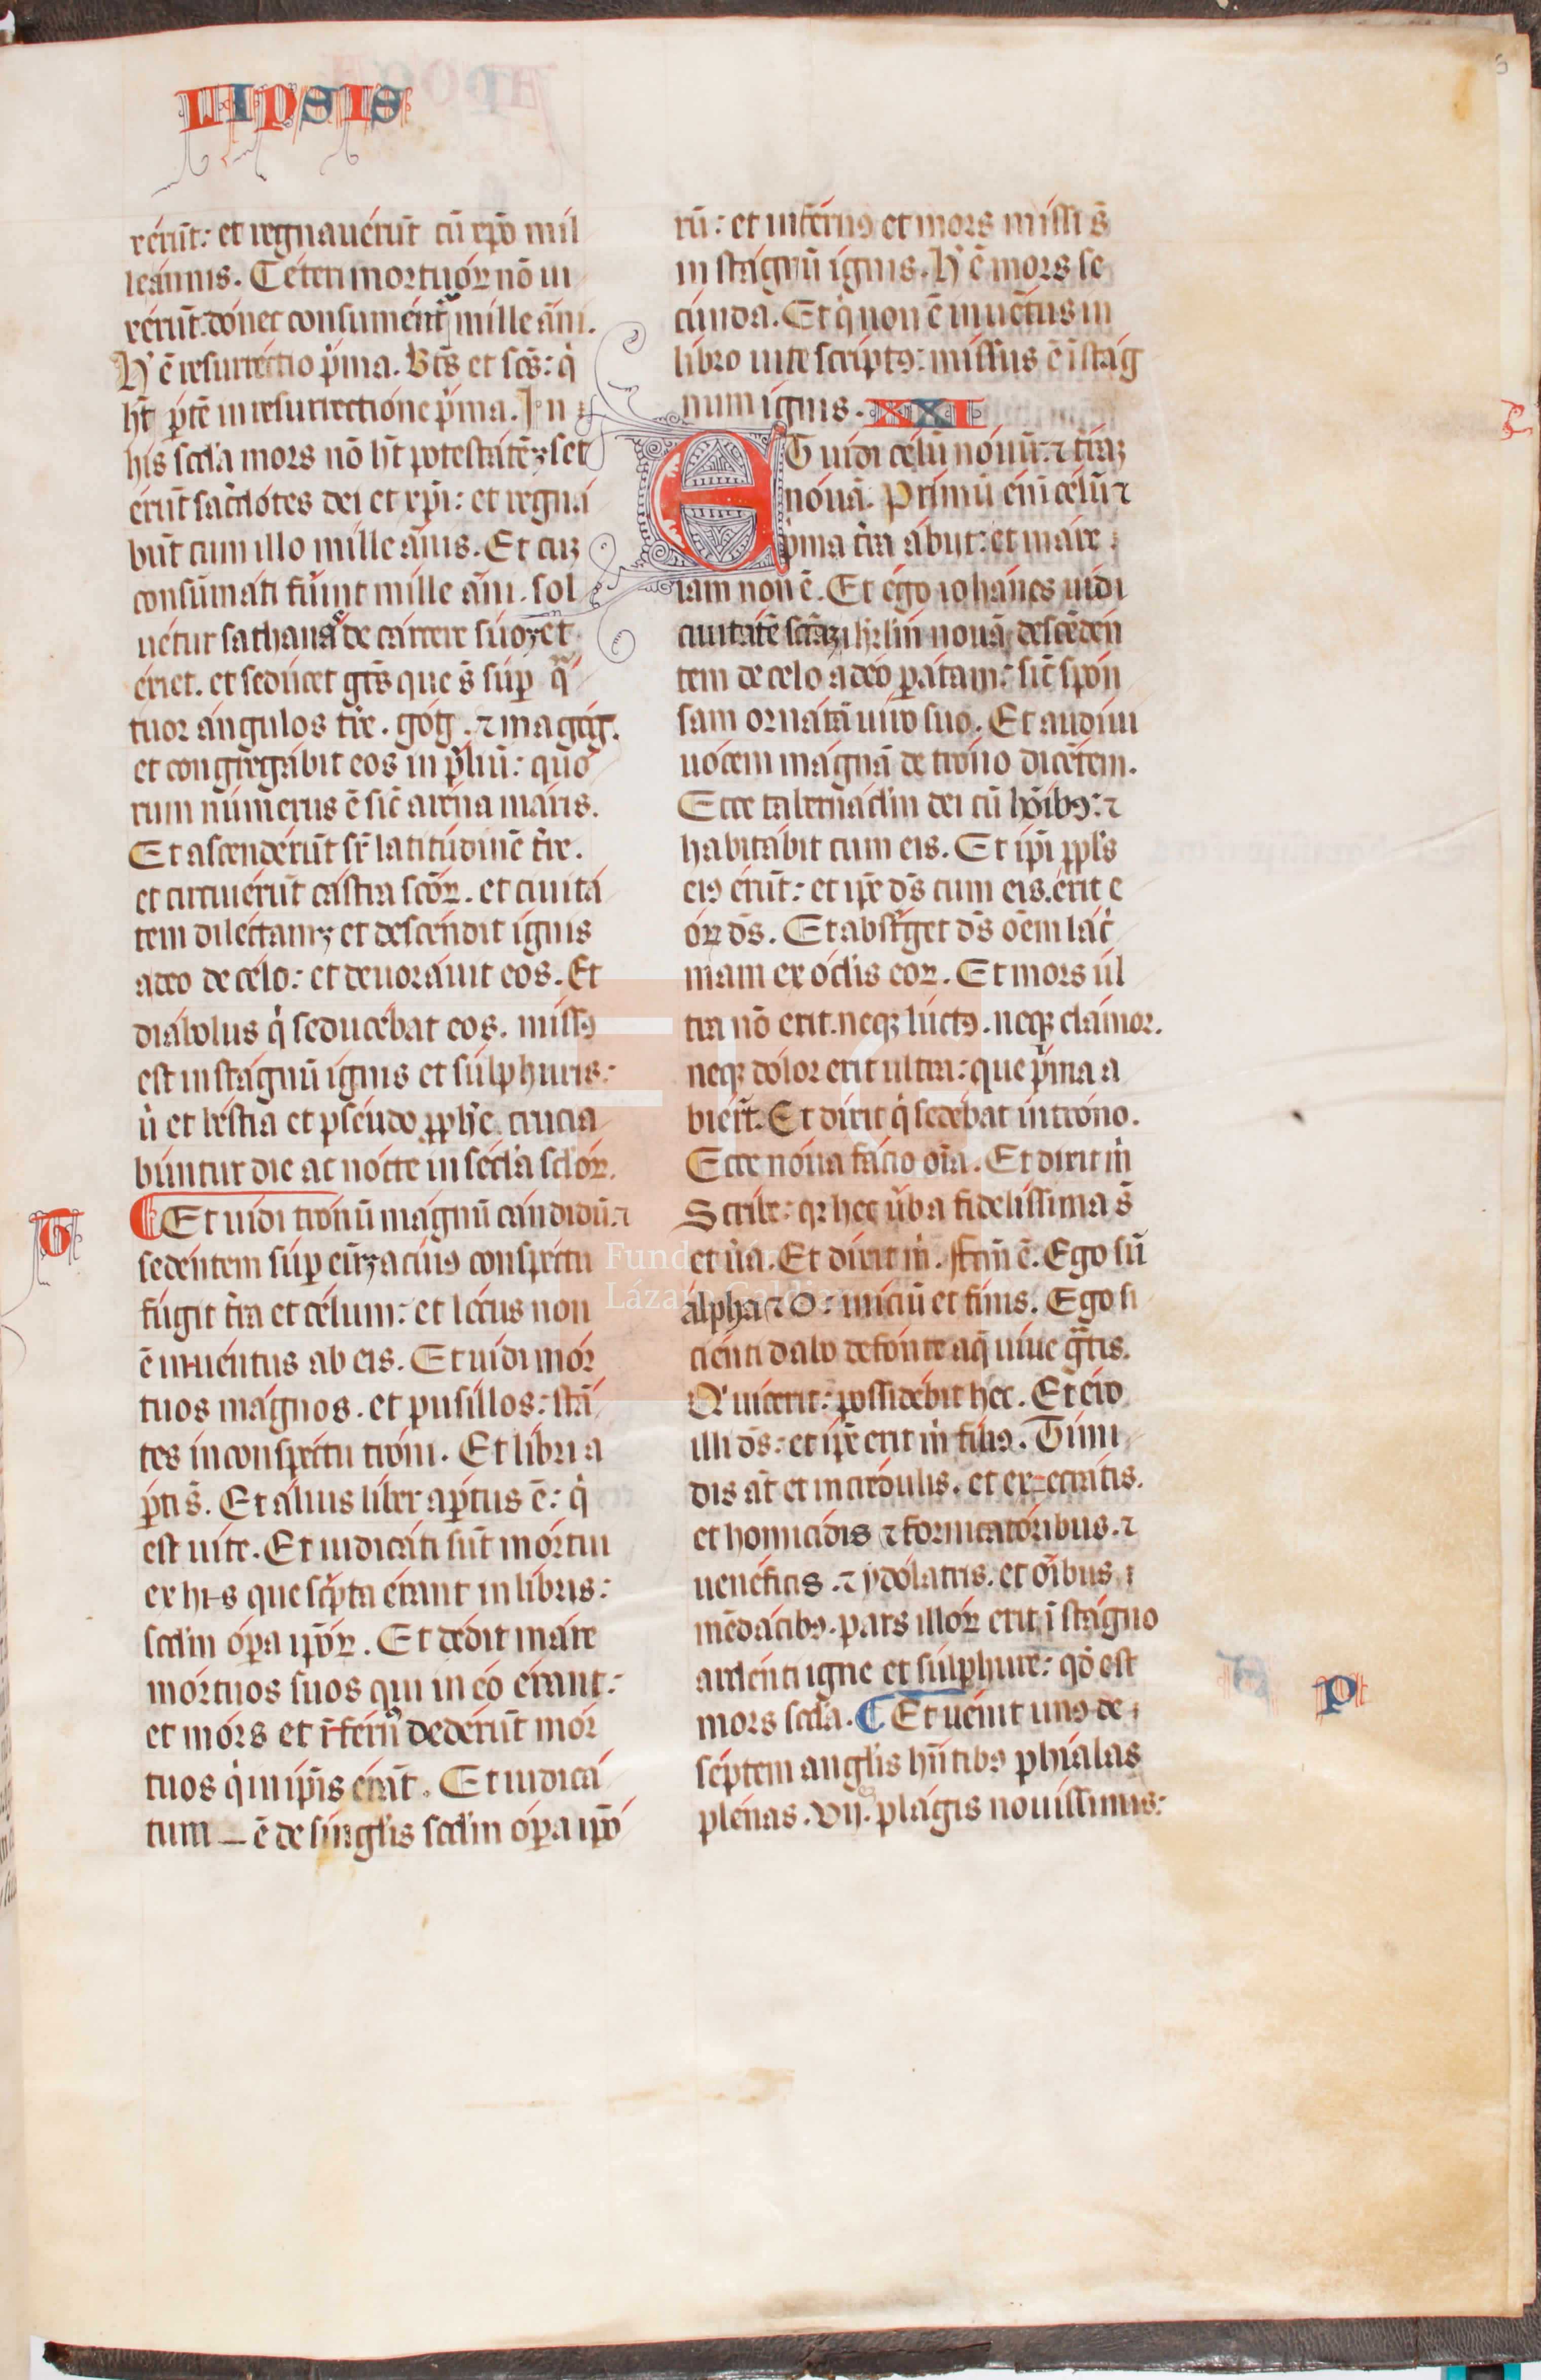 LIPSIS
rerūt: et regnauerūt cū xp̄o mil
leannis. Ceteri mortuoꝝ nō ui
xerūt. donec consument᷑ mille ān̄i.
H̓ ē resurrectio p̓ma. Bt̄s et sc̄s: q̓
ht̄ ꝑtē in resurrectione p̓ma. In
his sc̄da mors nō ht̄ potestatēꝫ set
erūt sac̓dotes dei et xp̄i: et regna
būt cum illo mille ān̄is. Et cuꝫ
consūmati fūint mille ān̄i. sol
uetur sathanas de carcere suoꝫ et
exiet. et seducet gt̄s que s̄ suꝑ qͣ
tuor angulos t̓re. gog. ⁊ magog.
et congregabit eos in p̄liū: quo
rum numerus ē sic̄ arena maris.
Et ascenderūt sr̄ latitudinē t̓re.
et circuerūt castra sc̄oꝝ. et ciuita
tem dilectamꝫ et descendit ignis
adeo de celo: et deuorauit eos. Et
diabolus q̓ seducebat eos. missꝯ
est in stagnū ignis et sulphuris:
ū et bestia et pseudo ꝓph̓e crucia
buntur die ac nocte in sec̄la sc̄loꝝ.
T
Et uidi tronū magnū candidū. ⁊
sedentem suꝑ eūꝫ a cuiꝯ conspectu
fugit t̓ra et celum: et locus non
ē inuentus ab eis. Et uidi mor
tuos magnos. et pusillos: stā
tes in conspectu troni. Et libri a
ꝑti s̄. Et alius liber aꝑtus ē: q̓
est uite. Et iudicati sūt mortui
ex his que sc̓pta erant in libris:
sc̄dm oꝑa ip̄oꝝ. Et dedit mare
mortuos suos qui in eo erant:
et mors et īfernꝯ dederūt mor
tuos q̓ in ip̄is erāt. Et iudica
tum ē de singl̓is sc̄dm oꝑa ip̄o
rū: et infernꝯ et mors missi s̄
in stagnū ignis. H̓ ē mors se
cunda. Et q̓ non ē inuētus in
libro uite scriptꝯ: missus ē ī stag
num ignis. XXI
ET uidi celū nouū. ⁊ t̓raꝫ
nouā. Primū enī celū ⁊
p̓ma t̓ra abiit: et mare
iam non ē. Et ego iohānes uidi
ciuitatē sc̄aꝫ ih̓rlm nouā descēden
tem de celo adeo ꝑatam: sic̄ spon
sam ornatā uiro suo. Et audiui
uocem magnā de trono dicētem.
Ecce tabernac̄lm dei cū hōibꝯ: ⁊
habitabit cum eis. Et ip̄i ꝓpl̓s
eiꝯ erūt: et ip̄e d̄s cum eis. erit e
oꝝ d̄s. Et abst̓get d̄s ōem lac̓
mam ex oc̄lis eoꝝ. Et mors ul
tra nō erit. neqꝫ luctꝯ. neqꝫ clamor.
neqꝫ dolor erit ultra: que p̓ma a
bier̄t. Et dixit q̓ sedebat in trono.
Ecce noua facio oīa. Et dixit m̓
Scribe: qꝛ hec ūba fidelissima s̄
et ūa. Et dixit m̓. fc̄m ē. Ego sū
alpha ⁊ O: iniciū et finis. Ego si
cienti dabo de fonte aq̄ uiue gͣtis.
Q̓ uicerit: possidebit hec. Et ero
illi d̄s: et ip̄e erit m̓ filiꝯ. Timi
dis at̄ et incredulis. et execratis.
et homicidis ⁊ fornicatoribus. ⁊
ueneficis. ⁊ ydolatris. et oībus
mēdacibꝯ. pars illoꝝ erit ī stagno
ardenti igne et sulphure: qd̄ est
mors sc̄da. Et uenit unꝯ de
P
septem angl̓is hn̄tibꝯ phialas
plenas. vij. plagis nouissimis:
Fundación
Lázaro Galdiano